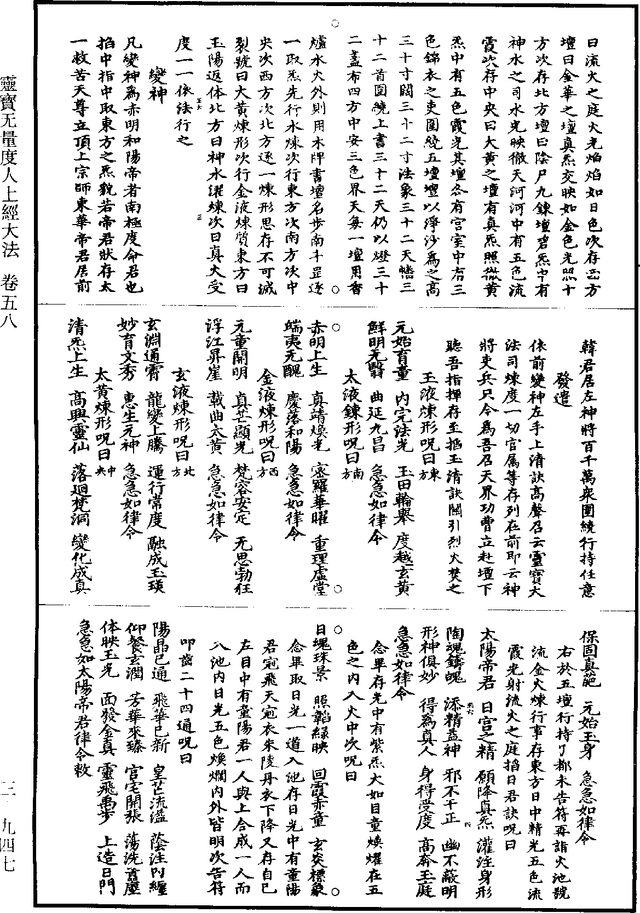 靈寶无量度人上經大法　卷五八
日流火之庭火光焰焰如日色次存西方
壇曰金華之壇真炁交映如金色光照十
方次存北方壇曰陰尸九鍊壇碧炁中有
神水之司水光映徹天河河中有五色流
霞次存中央曰大黃之壇有真炁照徹黃
炁中有五色霞光其壇各有宮室中有三
色錦衣之吏圍繞五壇壇以淨沙為之高
三十寸闊三十二寸法象三十二天幡三
十二首圍繞上書三十二天仍以燈三十
二盞布四方中安三色界天每一壇用香
爐水火外則用木牌書壇名步南斗罡逐
一取炁先行水煉次行東方次南方次中
央次西方次北方逐一煉形思存不可減
裂號曰大黃煉形次行金液煉質東方曰
玉陽返体北方曰神水濯煉次曰真火受
度一一依法行之
變神
凡變神為赤明和陽帝者南極度命君也
掐中指中取東方之炁觀若帝君狀存太
一救苦天尊立頂上宗師東華帝君居前
韓君居左神將百千萬衆圍繞行持任意
發遣
依前變神左手上清訣高聲召云靈寶大
法司煉度一切官屬等存列在前即云神
將吏兵只今為吾召天界功曹立赴壇下
聽吾指揮存至掐玉清訣閉引烈火焚之
玉液煉形呪曰東方
元始育童　內字法光　玉田輪舉　度越玄黃
鮮明无翳　曲延九昌　急急如律令
太液鍊形呪曰南方
赤明上生　真靖煥光　密羅華曜　重理虛堂
蝺夷无醜　慶落和陽　急急如律令
金液煉形呪曰西方
元童開明　真芒顯光　梵容安定　无思勃狂
浮江昇崖　戴曲太黃　急急如律令
玄液煉形呪曰北方
玄淵通霄　龍變上騰　運行常度　融成玉瑛
妙育文秀　惠生元神　急急如律令
太黃煉形呪曰中央
清炁上生　高興靈仙　落廻梵洞　變化成真
保固真範　元始玉身　急急如律令
右於五壇行持了都未告符再詣火池號
流金火煉行事存東方日中精光五色流
霞光射流火之庭掐日君訣呪曰
太陽帝君　日宮之精　願降真炁　灌注身形
陶魄鑄魄　添精益神　邪不干正　幽不蔽明
形神俱妙　得為真人　身得受度　高奔玉庭
急急如律令
念畢存光中有紫炁大如目童煥燿在五
色之內入火中次呪曰
日魂珠景　照韜綠映　回霞赤童　玄炎標象
念畢取日光一道入池存日光中有童陽
君冠飛天冠衣朱陵丹衣下降又存自己
左目中有童陽君一人與上合成一人而
入池內日光五色煥爛內外皆明次告符
叩齒二十四通呪曰
陽晶已通　飛華已新　皇芒流溢　蔭注內纏
仰餐玄潤　芳華來臻　宮宅開張　蕩洗舊塵
体映玉光　面發金真　靈飛禹步　上造日門
急急如太陽帝君律令敕
三　九四七